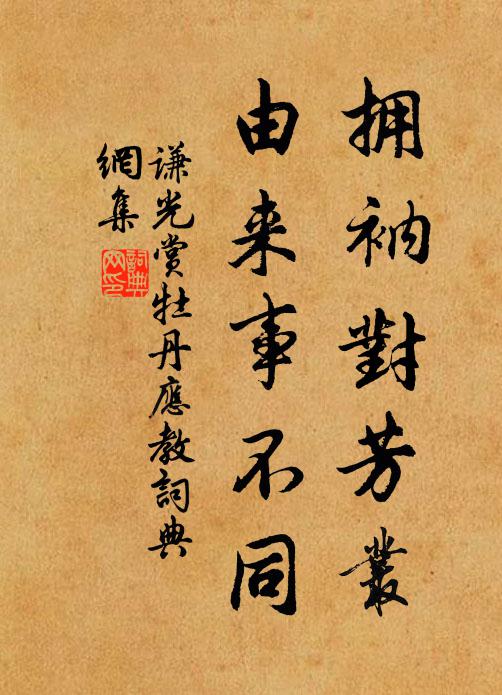 拥衲對芳叢
由来事不同
谦光赏牡丹應教詞典
網集
詞典
网印